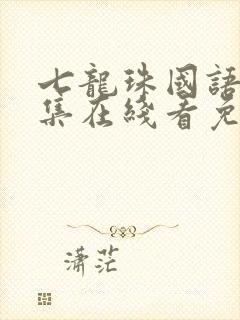 七龍珠國語
集在綫看免
瀟茫